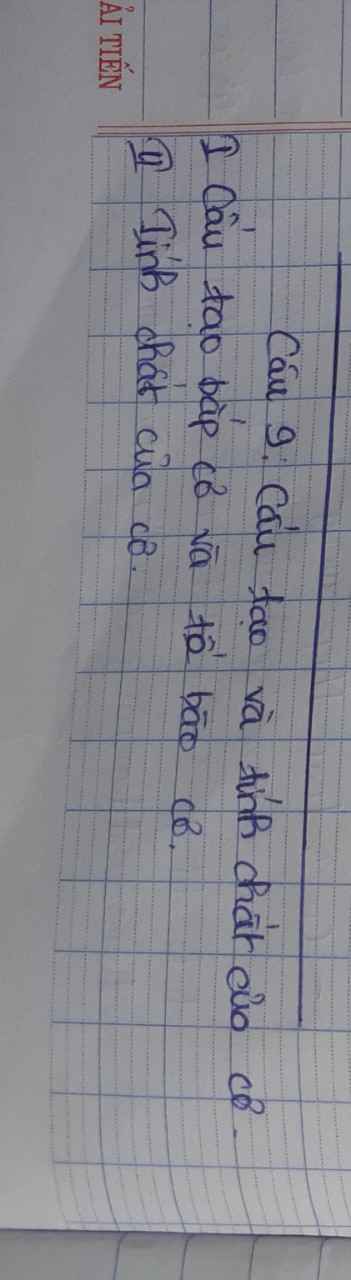 ẢI TIẾN
Câu 9: Cấu tạo và tính chất của cơ.
I Cấu tạo bắp cơ và tế bào cơ.
II Tính chất của cơ.